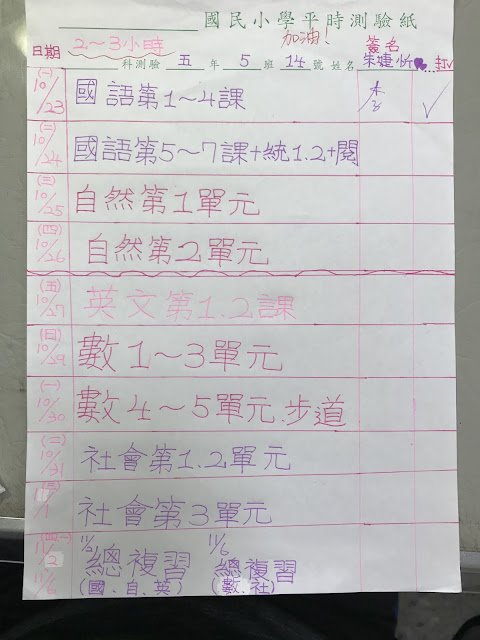 國民小學平時測驗紙
2～3小時 加油! 簽名
日期 科測驗 五 年 5 班 14 號 姓名
(一) 10/23 國語第1～4課
(二) 10/24 國語第5～7課+統1.2+閱
(三) 10/25 自然第1單元
(四) 10/26 自然第2單元
(五) 10/27 英文第1.2課
(日) 10/29 數1～3單元
(一) 10/30 數4～5單元.步道
(二) 10/31 社會第1.2單元
(三) 11/1 社會第3單元
(四、一) 11/2 11/6 11/2 總複習 11/6 總複習
(國、自、英) (數、社)